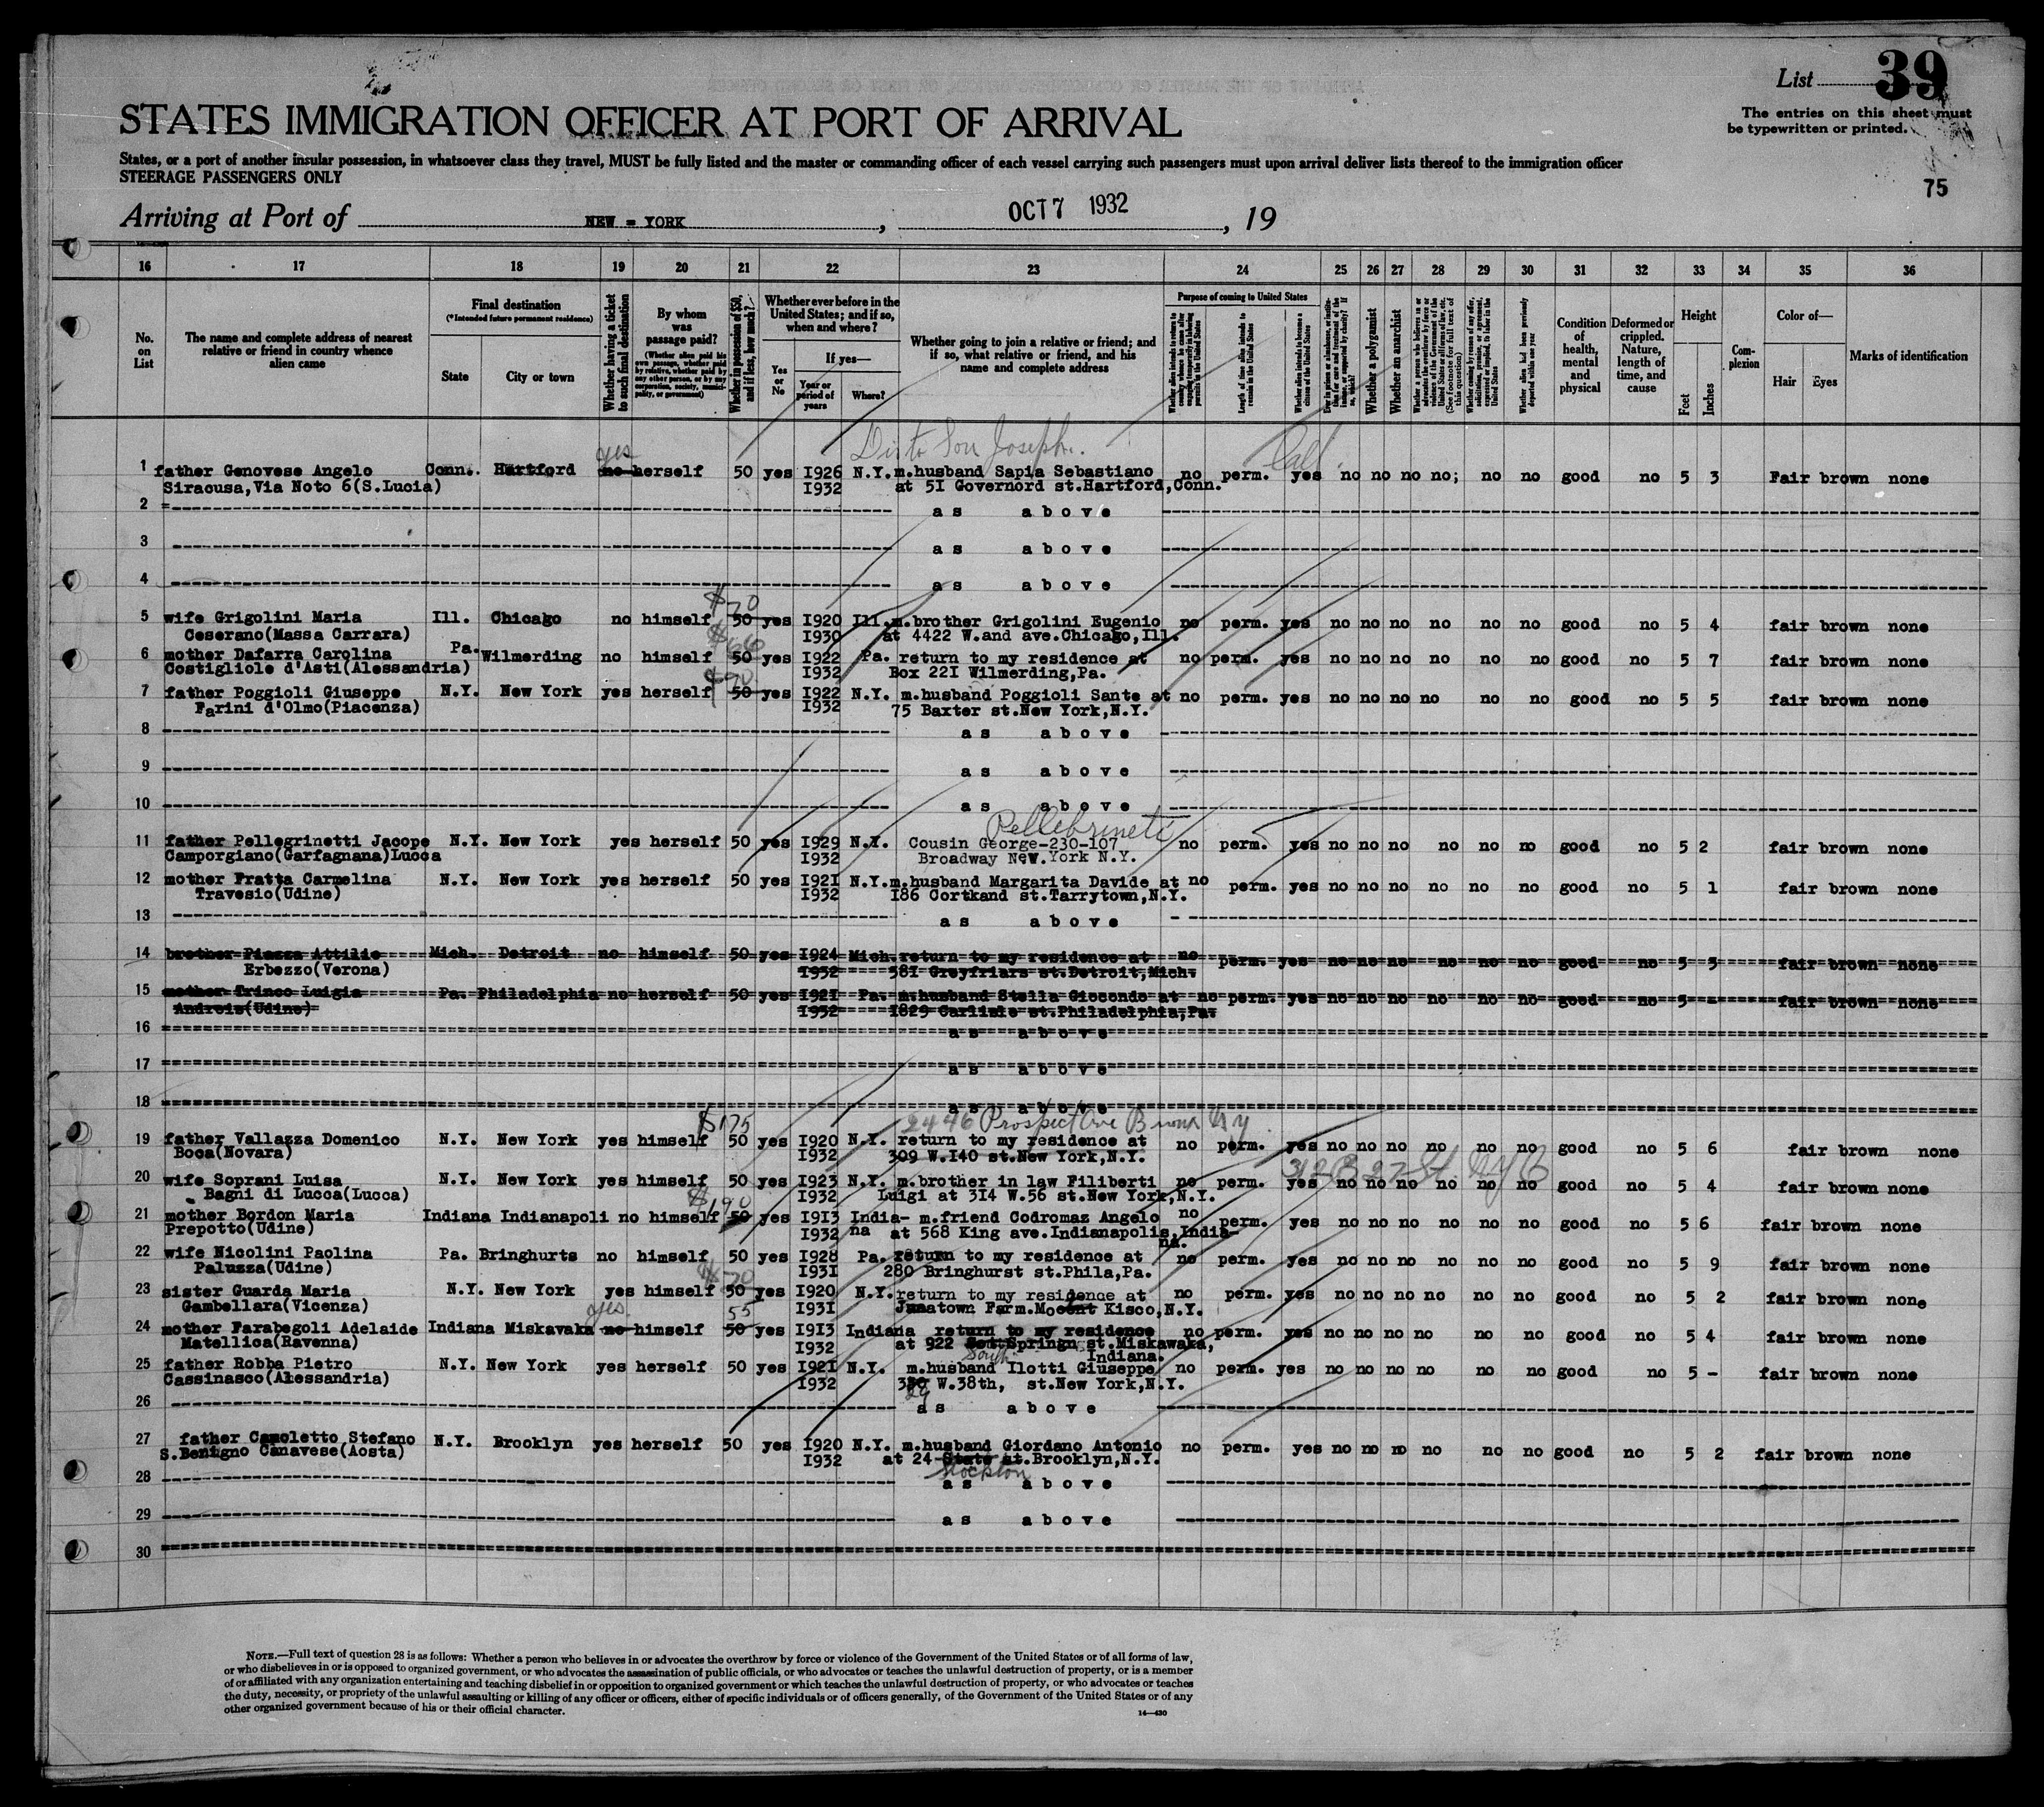 List 39
The entries on this sheet must
be typewritten or printed.
STATES IMMIGRATION OFFICER AT PORT OF ARRIVAL
States, or a port of another insular possession, in whatsoever class they travel, MUST be fully listed and the master or commanding officer of each vessel carrying such passengers must upon arrival deliver lists thereof to the immigration officer
STEERAGE PASSENGERS ONLY
75
Arriving at Port of NEW = YORK, OCT 7 1932, 19
16 17 18 19 20 21 22 23 24 25 26 27 28 29 30 31 32 33 34 35 36
No. on List
The name and complete address of nearest relative or friend in country whence alien came
Final destination
(*Intended future permanent residence)
State
City or town
Whether having a ticket to such final destination
By whom was passage paid?
(Whether alien paid his own passage, whether paid by relative, whether paid by any other person, or by any corporation, society, municipality, or government)
Whether in possession of $50, and if less, how much?
Whether ever before in the United States; and if so, when and where?
Yes or No
If yes—
Year or period of years
Where?
Whether going to join a relative or friend; and if so, what relative or friend, and his name and complete address
Purpose of coming to United States
Length of time alien intends to remain in the United States
Whether alien intends to become a citizen of the United States
Whether a polygamist
Whether an anarchist
(See footnote for full text of this question)
Whether alien had been previously deported within one year
Condition of health, mental and physical
Deformed or crippled. Nature, length of time, and cause
Height
Feet
Inches
Complexion
Color of—
Hair
Eyes
Marks of identification
yes
Dis to Son Joseph.
Call.
1 father Genovese Angelo Conn. Hartford no herself 50 yes I926 N.Y. m.husband Sapia Sebastiano no perm. yes no no no no; no no good no 5 3 Fair brown none
Siracusa,Via Noto 6(S.Lucia) I932 at 5I Governord st.Hartford,Conn.
2 as above
3 as above
4 as above
$70
5 wife Grigolini Maria Ill. Chicago no himself 50 yes I920 Ill. m.brother Grigolini Eugenio no perm. yes no no no no no no good no 5 4 fair brown none
Ceserano(Massa Carrara) I930 at 4422 W.and ave.Chicago,Ill.
$66
6 mother Dafarra Carolina Pa. Wilmerding no himself 50 yes I922 Pa. return to my residence at no perm. yes no no no no no no good no 5 7 fair brown none
Costigliole d'Asti(Alessandria) I932 Box 22I Wilmerding,Pa.
$70
7 father Poggioli Giuseppe N.Y. New York yes herself 50 yes I922 N.Y. m.husband Poggioli Sante at no perm. yes no no no no no no good no 5 5 fair brown none
Farini d'Olmo(Piacenza) I932 75 Baxter st.New York,N.Y.
8 as above
9 as above
10 as above
Pellebrineti
11 father Pellegrinetti Jacope N.Y. New York yes herself 50 yes I929 N.Y. Cousin George-230-107 no perm. yes no no no no no no good no 5 2 fair brown none
Camporgiano(Garfagnana)Lucca I932 Broadway New.York N.Y.
12 mother Fratta Carmelina N.Y. New York yes herself 50 yes I92I N.Y. m.husband Margarita Davide at no perm. yes no no no no no no good no 5 1 fair brown none
Travesio(Udine) I932 I86 Cortkand st.Tarrytown,N.Y.
13 as above
14 brother Piazza Attilio Mich. Detroit no himself 50 yes I924 Mich. return to my residence at no perm. yes no no no no no no good no 5 3 fair brown none
Erbezzo(Verona) I932 58I Greyfriars st.Detroit,Mich.
15 mother Trinco Luigia Pa. Philadelphia no herself 50 yes I92I Pa. m.husband Stella Giocondo at no perm. yes no no no no no no good no 5 - fair brown none
Andreis(Udine) I932 I829 Carlisle st.Philadelphia,Pa.
16 as above
17 as above
18 as above
$175
2446 Prospect Ave Bronx NY
19 father Vallazza Domenico N.Y. New York yes himself 50 yes I920 N.Y. return to my residence at no perm. yes no no no no no no good no 5 6 fair brown none
Boca(Novara) I932 309 W.I40 st.New York,N.Y.
312 E 27 St. NYC
20 wife Soprani Luisa N.Y. New York yes himself 50 yes I923 N.Y. m.brother in law Filiberti no perm. yes no no no no no no good no 5 4 fair brown none
Bagni di Lucca(Lucca) I932 Luigi at 3I4 W.56 st.New York,N.Y.
$190
21 mother Bordon Maria Indiana Indianapoli no himself 50 yes I9I3 India- m.friend Codromaz Angelo no perm. yes no no no no no no good no 5 6 fair brown none
Prepotto(Udine) I932 na at 568 King ave.Indianapolis,India-
na.
22 wife Nicolini Paolina Pa. Bringhurts no himself 50 yes I928 Pa. return to my residence at no perm. yes no no no no no no good no 5 9 fair brown none
Paluzza(Udine) I93I 280 Bringhurst st.Phila,Pa.
$70
23 sister Guarda Maria N.Y. New York yes himself 50 yes I920 N.Y. return to my residence at no perm. yes no no no no no no good no 5 2 fair brown none
Gambellara(Vicenza) I93I Farm. Kisco,N.Y.
yes 55
24 mother Farabegoli Adelaide Indiana Miskavaka no himself 50 yes I9I3 Indiana return to my residence no perm. yes no no no no no no good no 5 4 fair brown none
Matellica(Ravenna) I932 at 922 st.Miskawaka,
South Indiana.
25 father Robba Pietro N.Y. New York yes herself 50 yes I92I N.Y. m.husband Ilotti Giuseppe no perm. yes no no no no no no good no 5 - fair brown none
Cassinasco(Alessandria) I932 W.38th, st.New York,N.Y.
29
26 as above
27 father Camoletto Stefano N.Y. Brooklyn yes herself 50 yes I920 N.Y. m.husband Giordano Antonio no perm. yes no no no no no no good no 5 2 fair brown none
S.Benigno Canavese(Aosta) I932 at 24 State st.Brooklyn,N.Y.
Stockton
28 as above
29 as above
30
NOTE.—Full text of question 28 is as follows: Whether a person who believes in or advocates the overthrow by force or violence of the Government of the United States or of all forms of law,
or who disbelieves in or is opposed to organized government, or who advocates the assassination of public officials, or who advocates or teaches the unlawful destruction of property, or is a member
of or affiliated with any organization entertaining and teaching disbelief in or opposition to organized government or which teaches the unlawful destruction of property, or who advocates or teaches
the duty, necessity, or propriety of the unlawful assaulting or killing of any officer or officers, either of specific individuals or of officers generally, of the Government of the United States or of any
other organized government because of his or their official character.
14—430